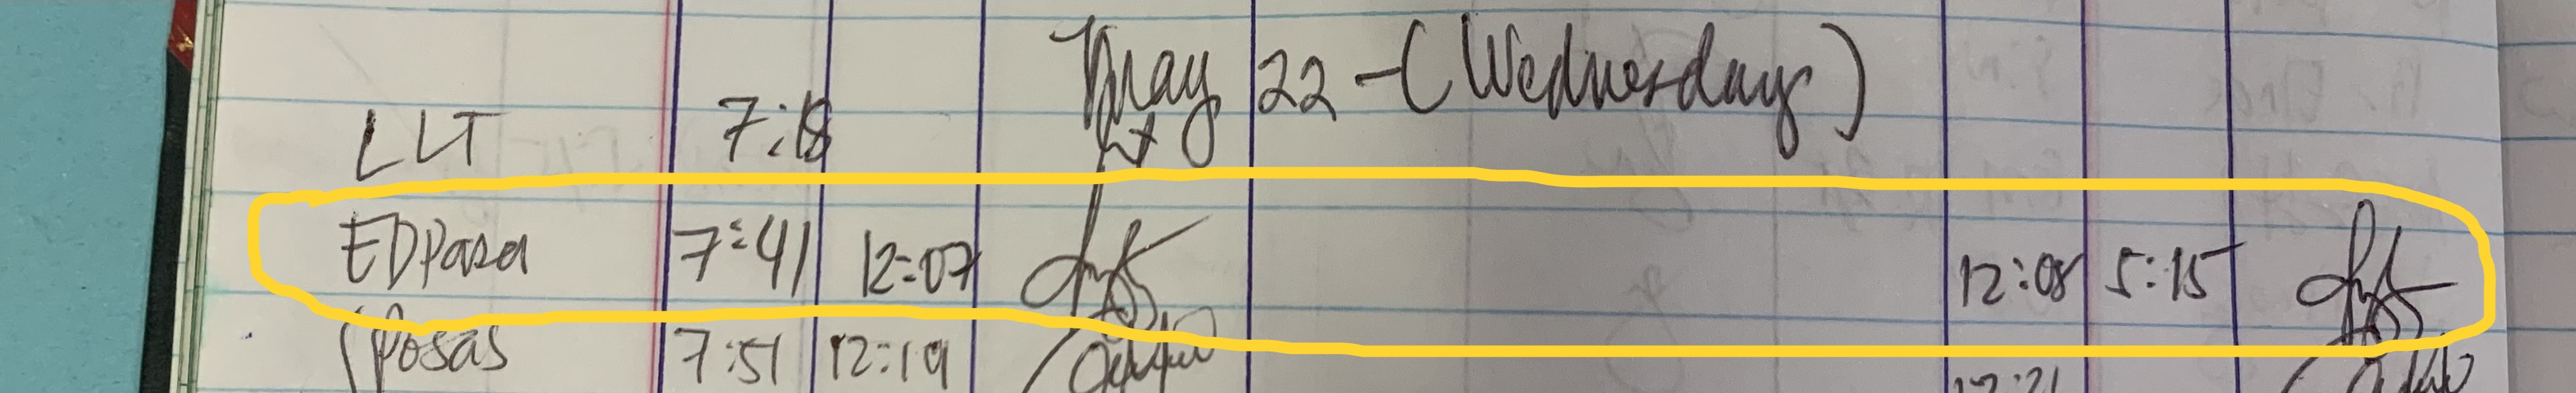 May 22 - (Wednesday)
LLT 7:18
EDPasa 7:41 12:07 12:08 5:15
Posas 7:51 12:19 12:21